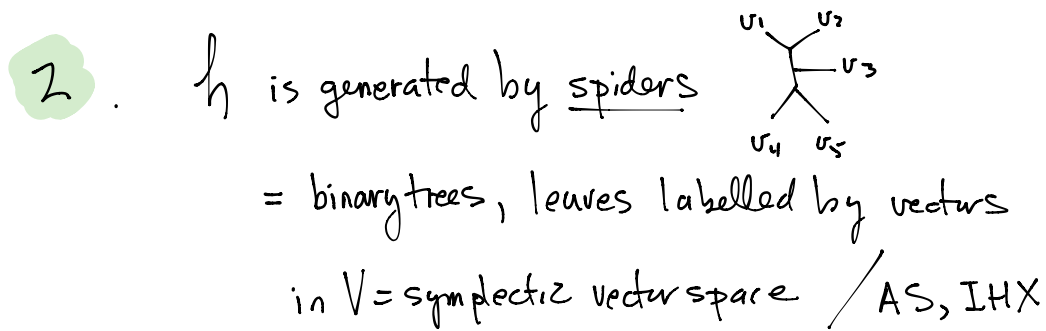 2. h is generated by spiders
v1 v2
v3
v4 v5
= binary trees, leaves labelled by vectors
in V = symplectic vector space / AS, IHX